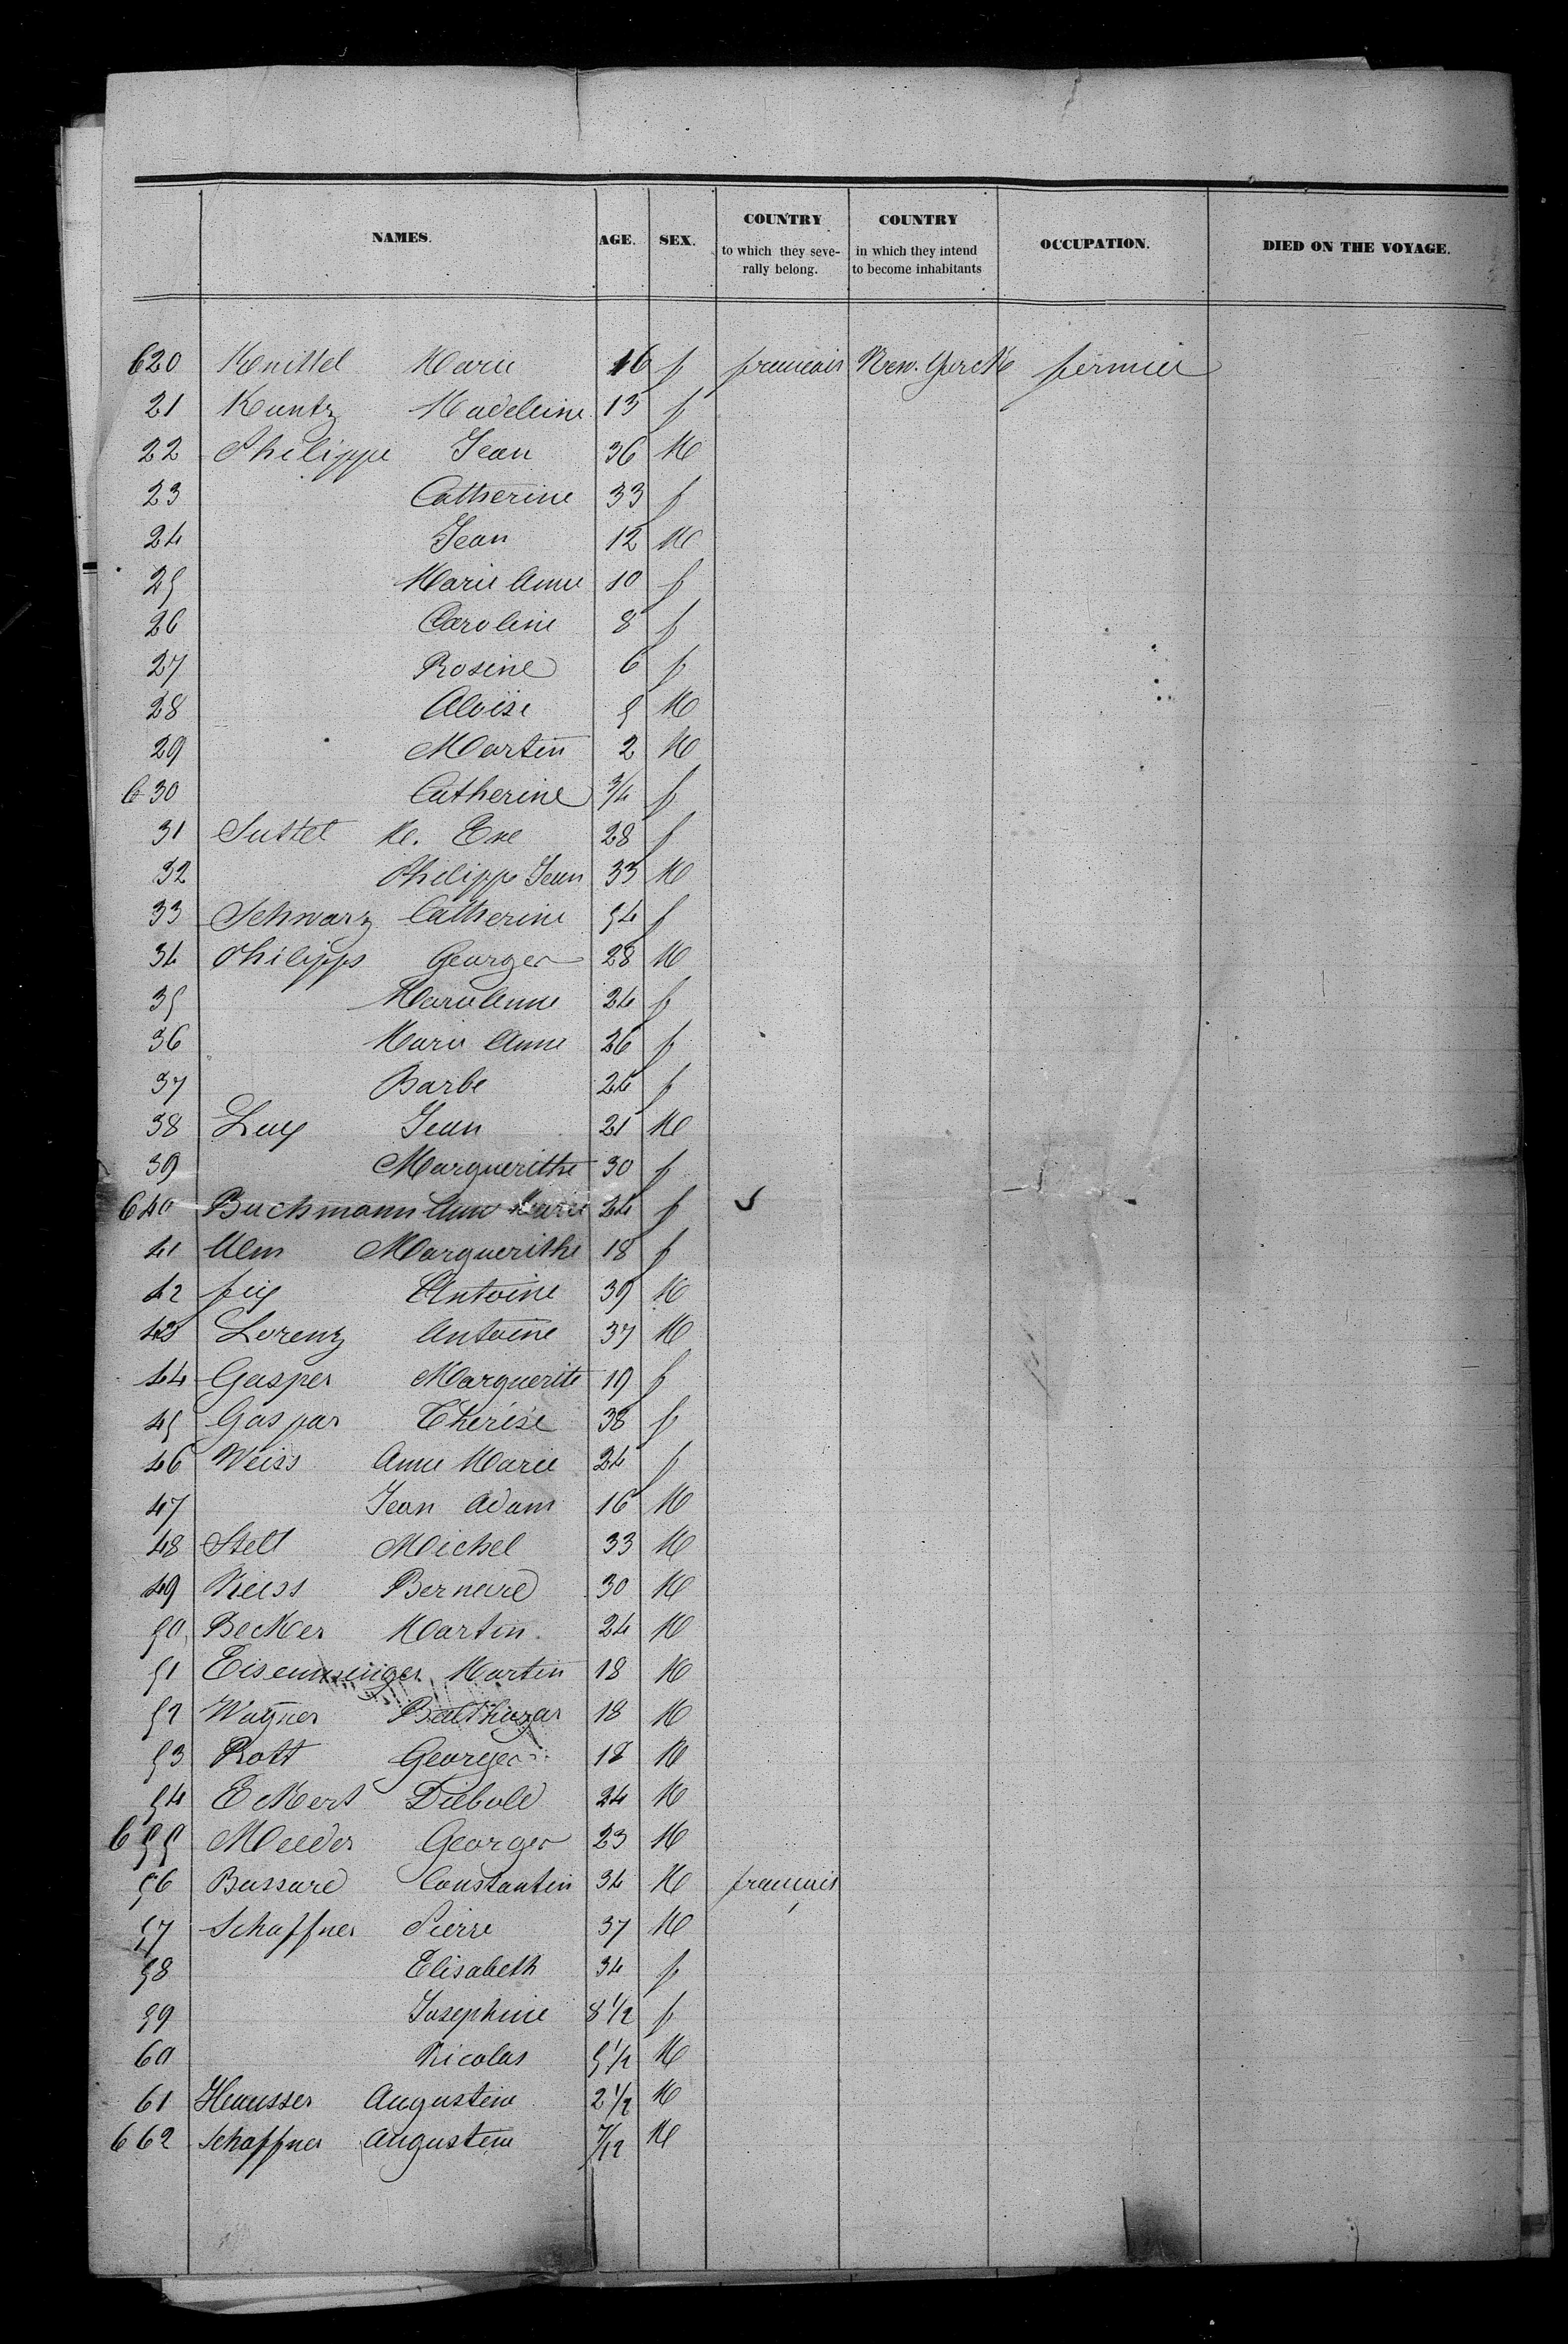 NAMES. AGE. SEX. COUNTRY to which they seve- rally belong. COUNTRY in which they intend to become inhabitants OCCUPATION. DIED ON THE VOYAGE.
620 Knittel Marie 16 f francais New. Yorck fermier
21 Kuntz Madeleine 13 f
22 Philippe Jean 36 M
23 Catherine 33 f
24 Jean 12 M
25 Marie Anne 10 f
26 Caroline 8 f
27 Rosine 6 f
28 Aloise 5 M
29 Martin 2 M
630 Catherine 3/4 f
31 Suttet M. Eve 28 f
32 Philipps Jean 33 M
33 Schwarz Catherine 54 f
34 Philipps Georges 28 M
35 Marie Anne 24 f
36 Marie Anne 26 f
37 Barbe 24 f
38 Luy Jean 21 M
39 Marguerithe 30 f
640 Buchmann Ann Marie 24 f
41 Ulm Marguerithe 18 f
42 Antoine 39 M
43 Lorenz Antoine 37 M
44 Gasper Marguerite 19 f
45 Gaspar Thérèse 38 f
46 Weiss Anne Marie 24 f
47 Jean Adam 16 M
48 Stell Michel 33 M
49 Bernard 30 M
50 Becker Martin 24 M
51 Martin 18 M
52 Wagner Balthazar 18 M
53 Rott Georges 18 M
54 Eckert Diebold 24 M
655 Meeder Georges 23 M
56 Bussard Constantin 34 M français
57 Schaffner Pierre 37 M
58 Elisabeth 34 f
59 Josephine 8 1/2 f
60 Nicolas 5 1/2 M
61 Heausser Augustin 2 1/2 M
662 Schaffner Augustin 7/12 M